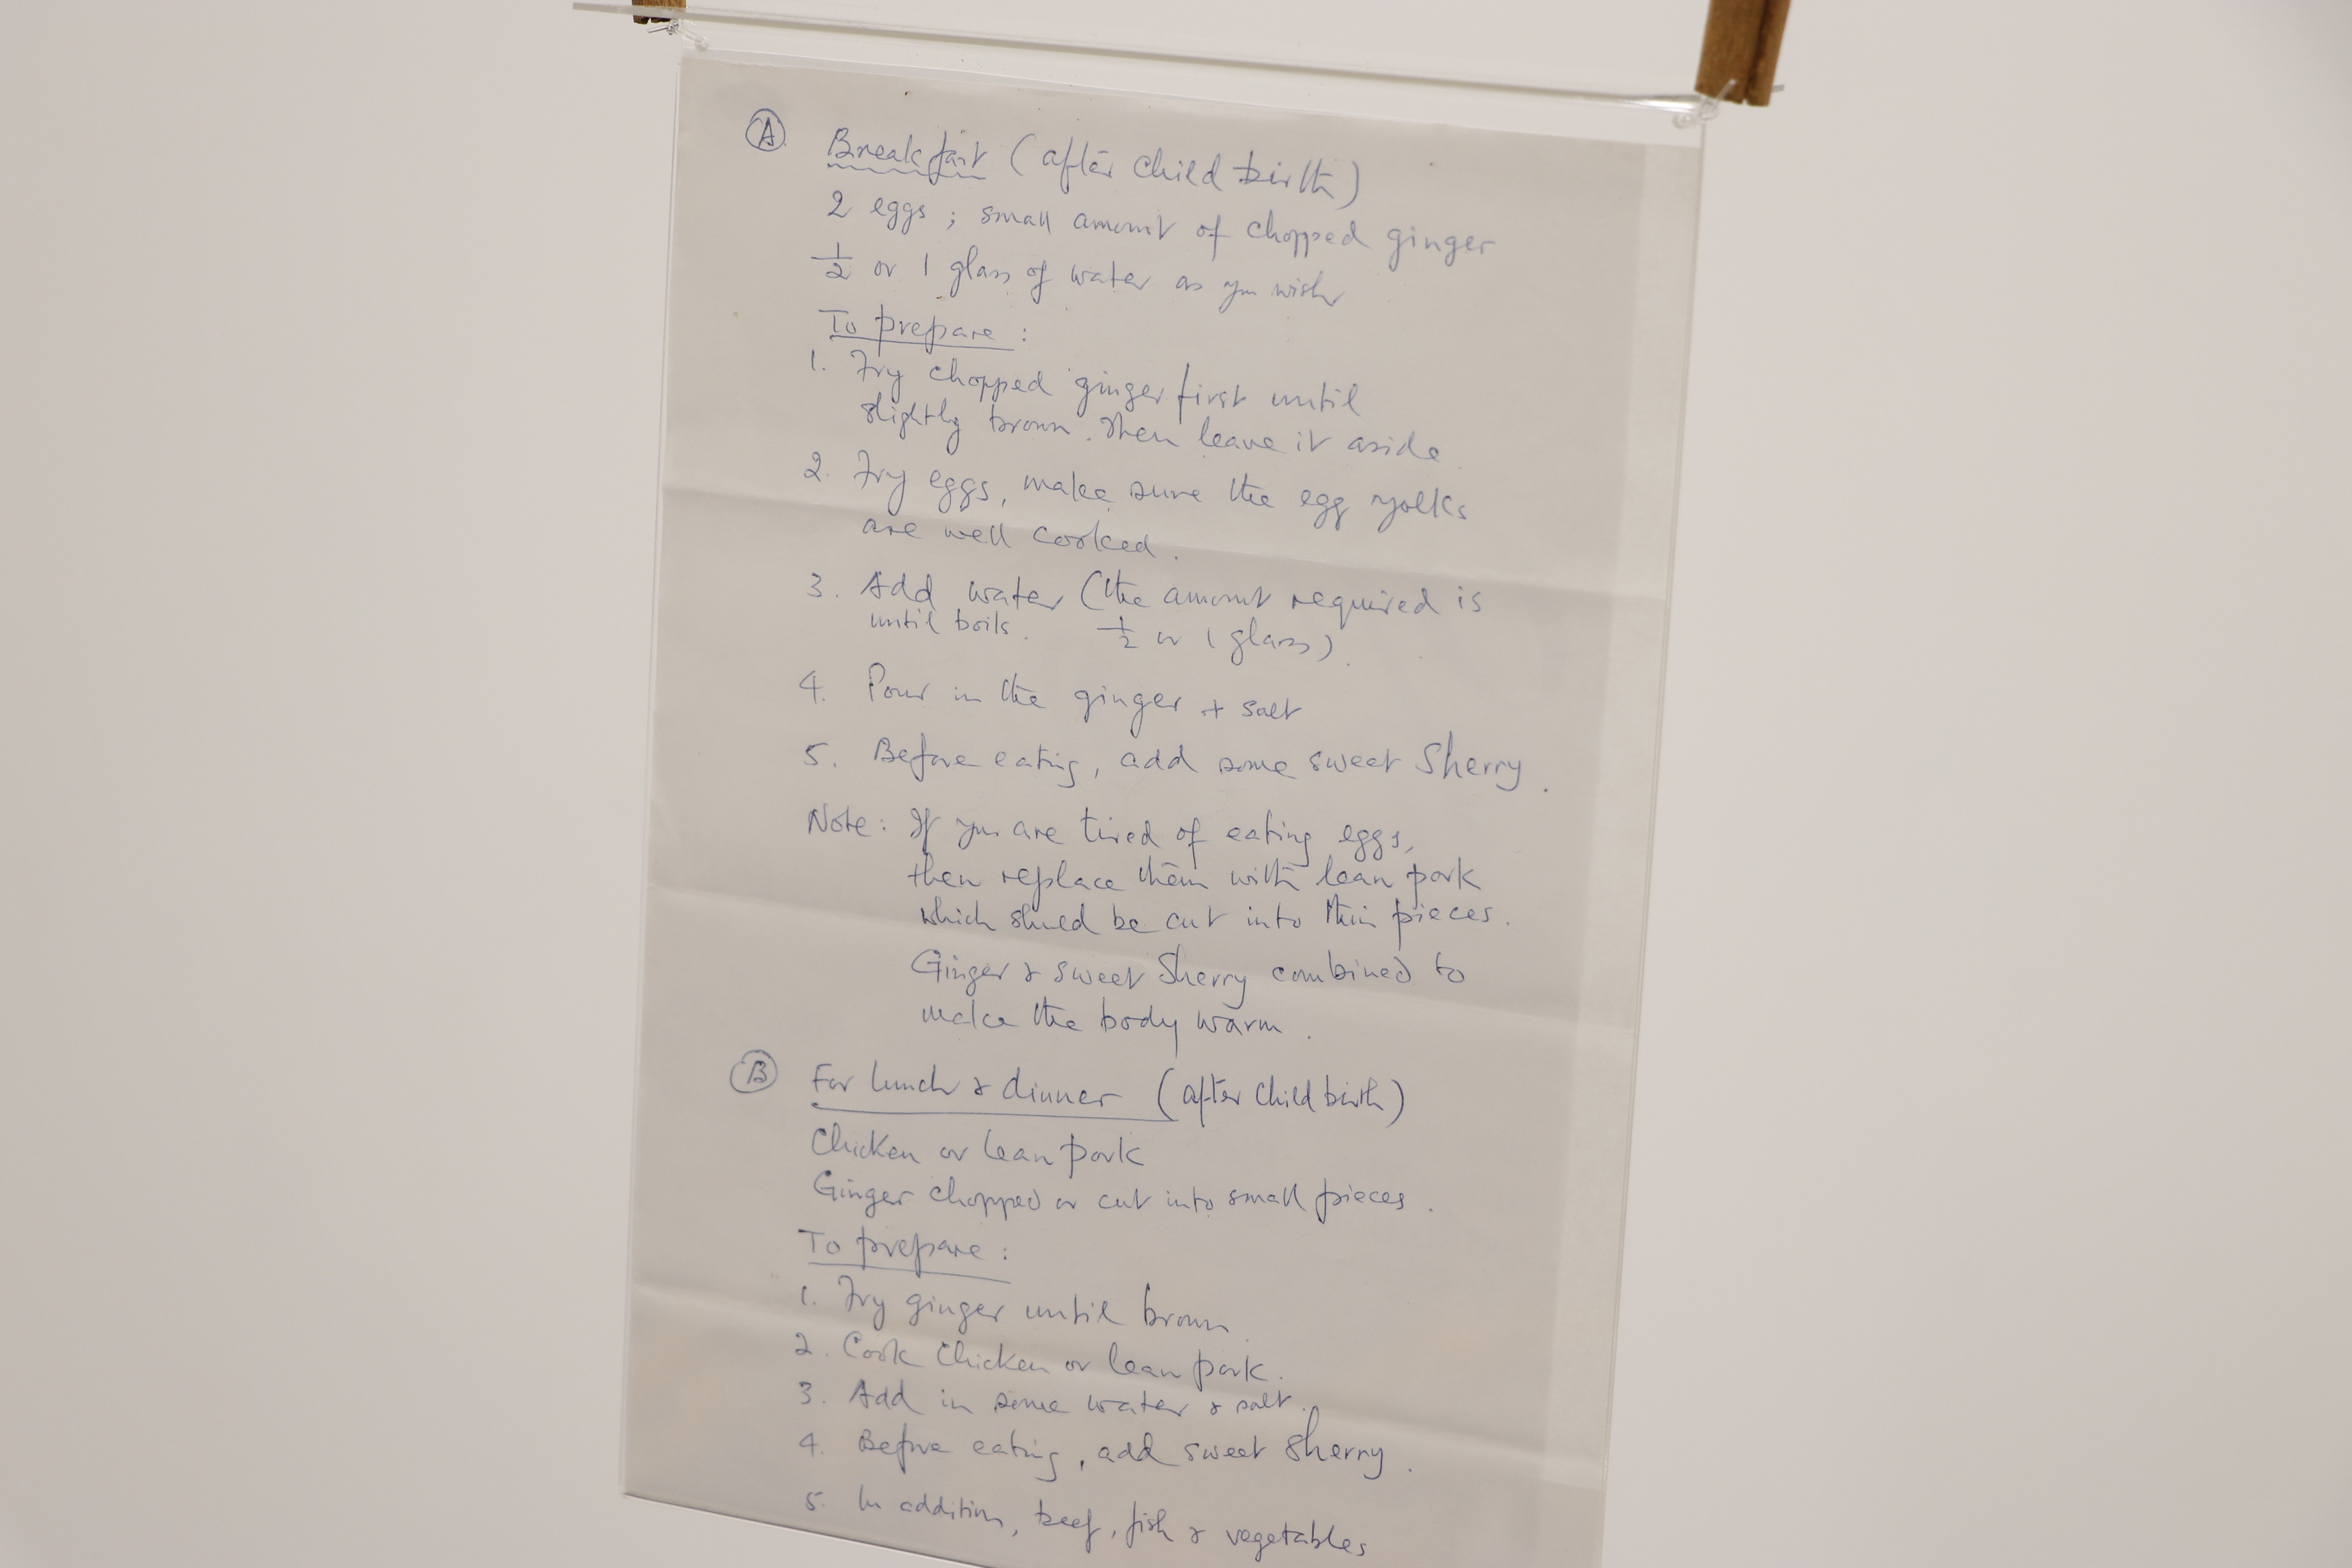 A Breakfast (after child birth)
2 eggs ; small amount of chopped ginger
1/2 or 1 glass of water as you wish
To prepare :
1. Fry chopped ginger first until
slightly brown. Then leave it aside.
2. Fry eggs, make sure the egg yolks
are well cooked.
3. Add water (the amount required is
until boils. 1/2 or 1 glass).
4. Pour in the ginger + salt
5. Before eating, add some sweet Sherry.
Note: If you are tired of eating eggs,
then replace them with lean pork
which should be cut into thin pieces.
Ginger & sweet Sherry combined to
make the body warm.
B For lunch & dinner (after child birth)
Chicken or lean pork
Ginger chopped or cut into small pieces.
To prepare :
1. Fry ginger until brown.
2. Cook chicken or lean pork.
3. Add in some water & salt.
4. Before eating, add sweet Sherry.
5. In addition, beef, fish & vegetables